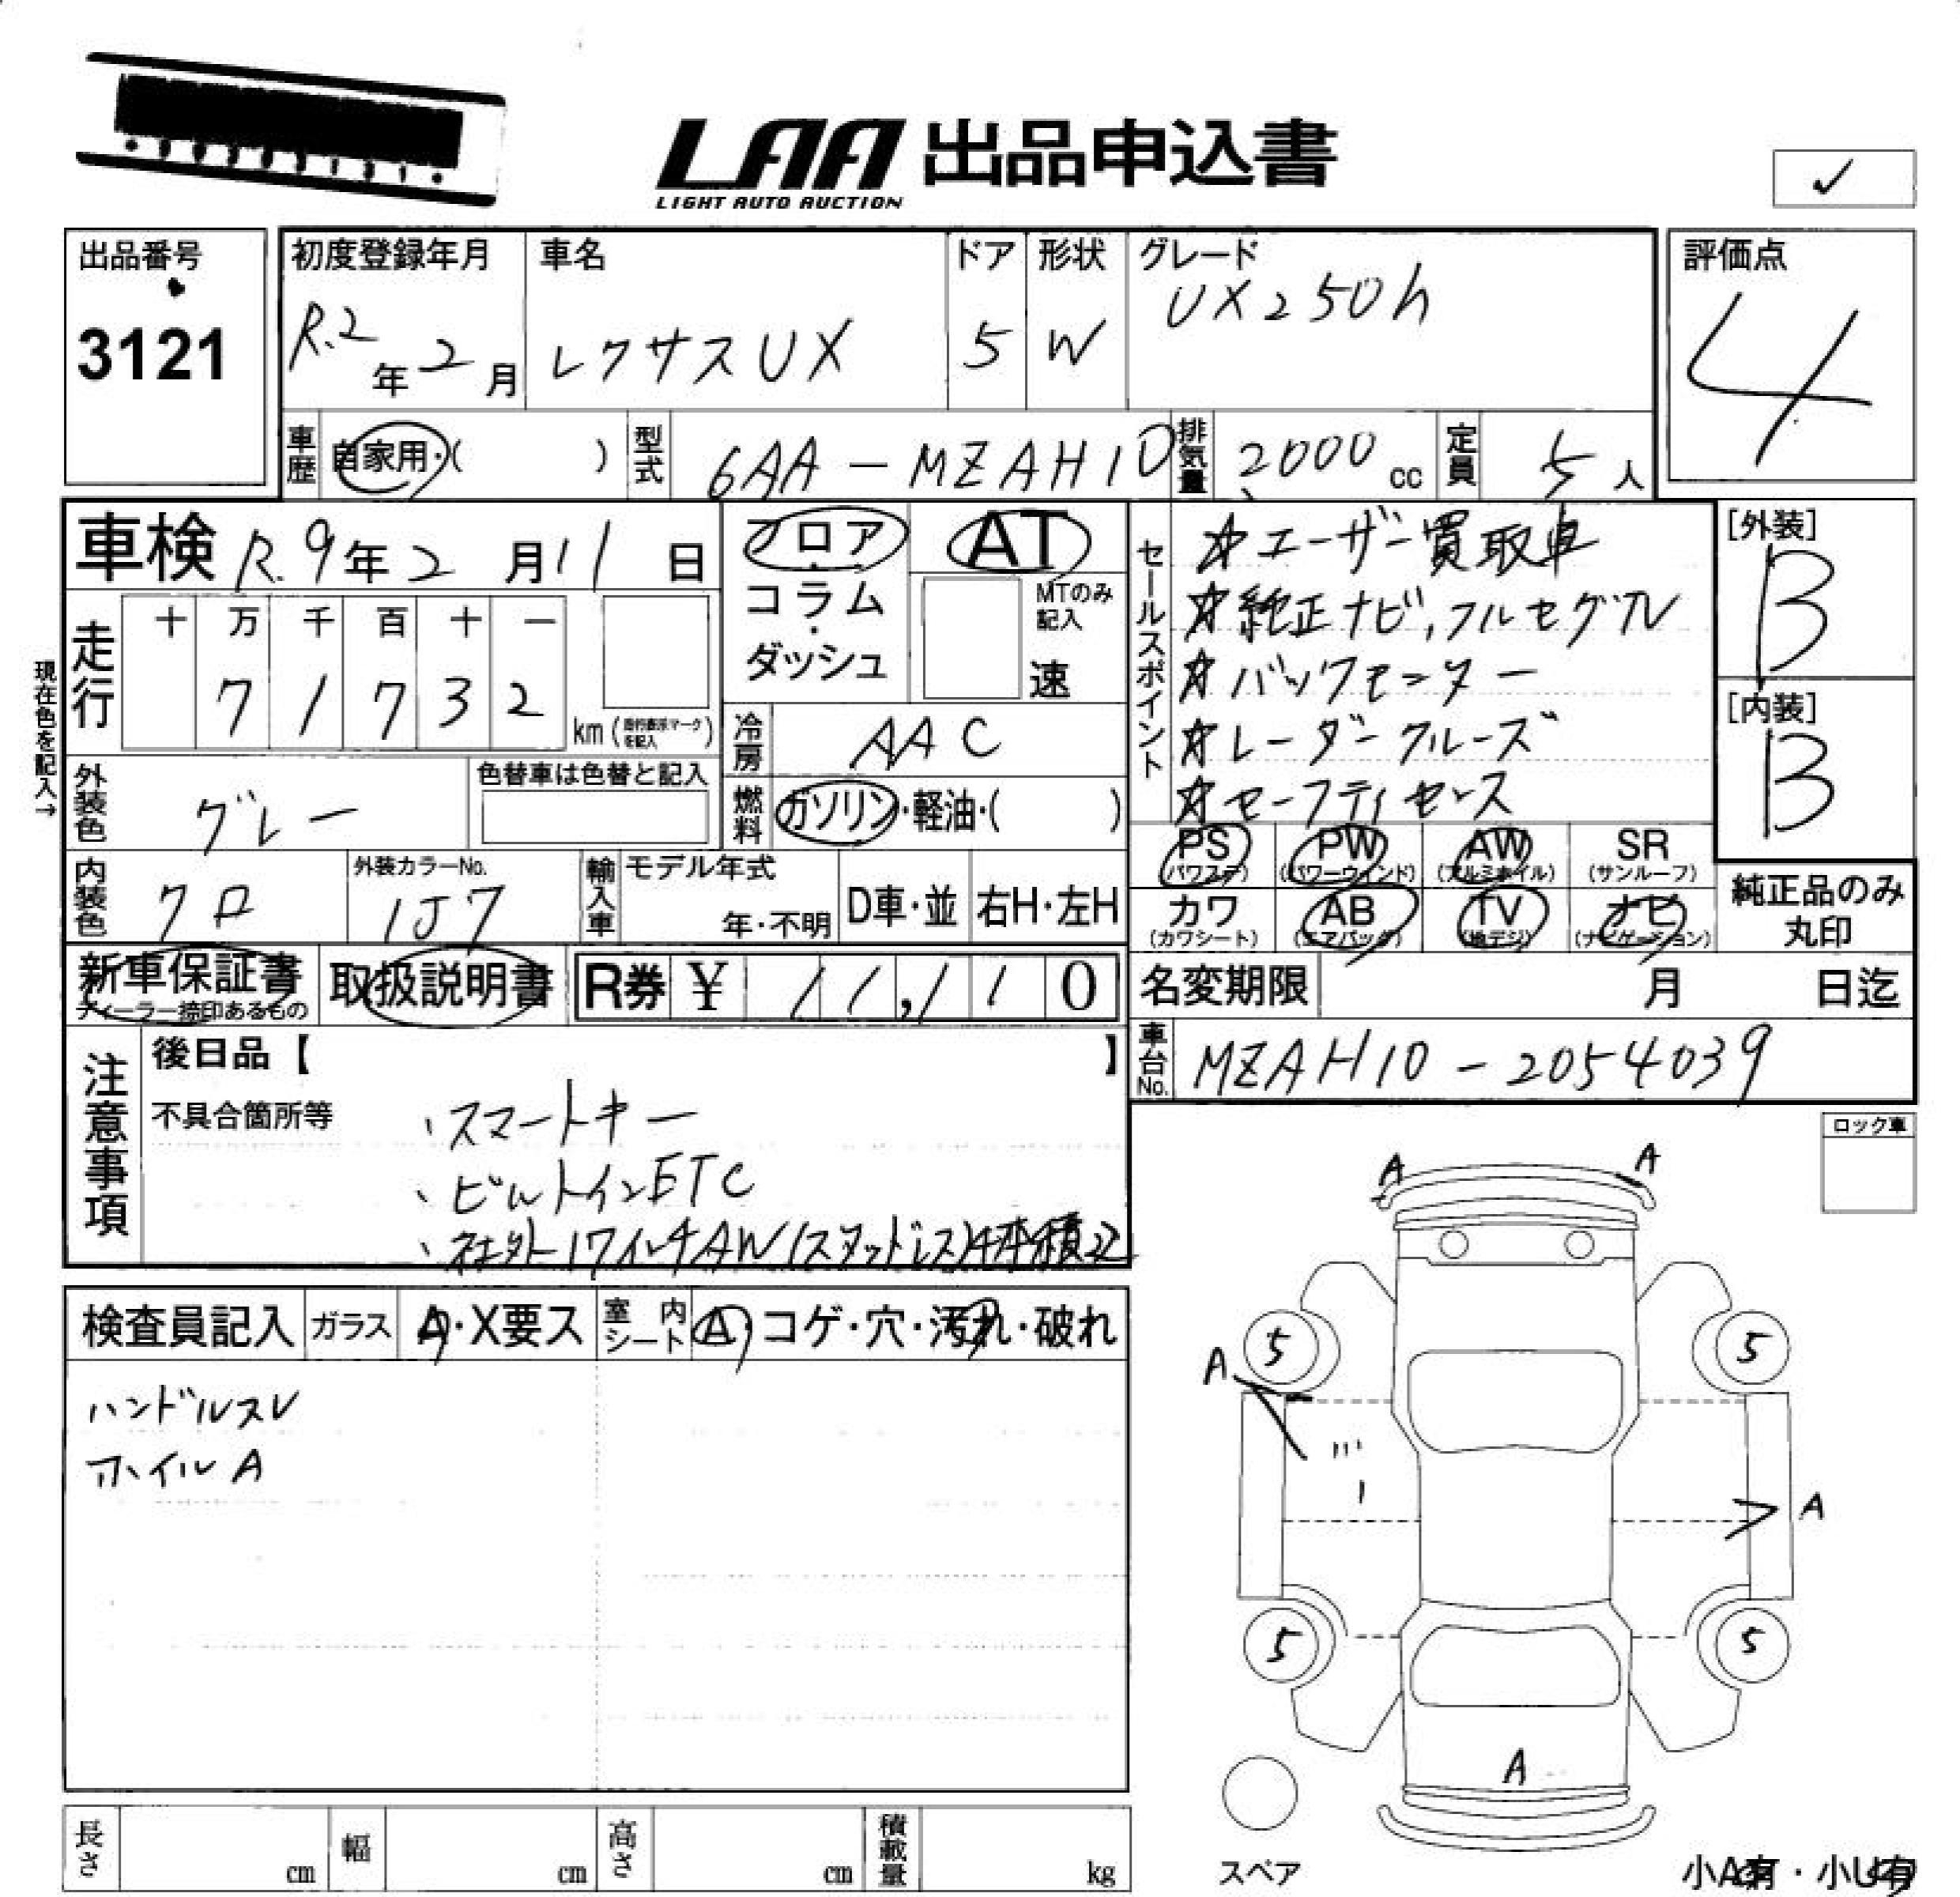 LAA 出品申込書
LIGHT AUTO AUCTION
✓
出品番号
3121
初度登録年月
R.2年2月
車名
レクサスUX
ドア
5
形状
W
グレード
UX250h
評価点
4
車歴 自家用・( )
型式 6AA-MZAH10
排気量 2000cc
定員 5人
車検 R.9年2月11日
フロア・コラム・ダッシュ
AT
MTのみ記入
速
現在色を記入→
走行
十 万 千 百 十 一
7 1 7 3 2
km(走行表示マークを記入)
冷房 AAC
燃料 ガソリン・軽油・( )
外装色 グレー
色替車は色替と記入
内装色 クロ
外装カラーNo.
1J7
輸入車
モデル年式
年・不明
D車・並
右H・左H
セールスポイント
☆ユーザー買取車
☆純正ナビ,フルセグTV
☆バックモニター
☆レーダークルーズ
☆セーフティセンス
PS(パワステ)
PW(パワーウィンド)
AW(アルミホイル)
SR(サンルーフ)
カワ(カワシート)
AB(エアバッグ)
TV(地デジ)
ナビ(ナビゲーション)
[外装]
B
[内装]
B
純正品のみ丸印
新車保証書
ディーラー捺印あるもの
取扱説明書
R券 ¥ 11,110
名変期限 月 日迄
車台No. MZAH10-2054039
注意事項
後日品【 】
不具合箇所等
・スマートキー
・ビルトインETC
・社外17インチAW(スタッドレス)4本積込
ロック車
検査員記入
ガラス A・X要ス
室内シート A・コゲ・穴・汚れ・破れ
ハンドルスレ
ホイルA
A
A
5
5
A
A
5
5
A
スペア
小A有・小U有
長さ cm
幅 cm
高さ cm
積載量 kg